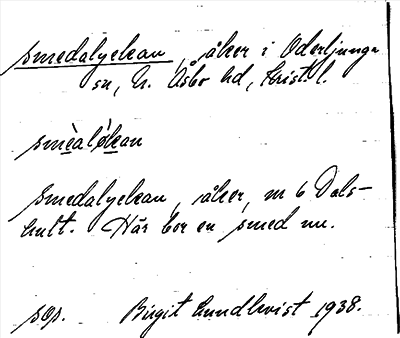 smedalyckan, åker i Oderljunga
sn, N. Åsbo hd, Krist. l.
smèaløkan
Smedalyckan, åker, m 6 Dals-
hult. Här bor en smed nu.
sop. Birgit Lundkvist 1938.